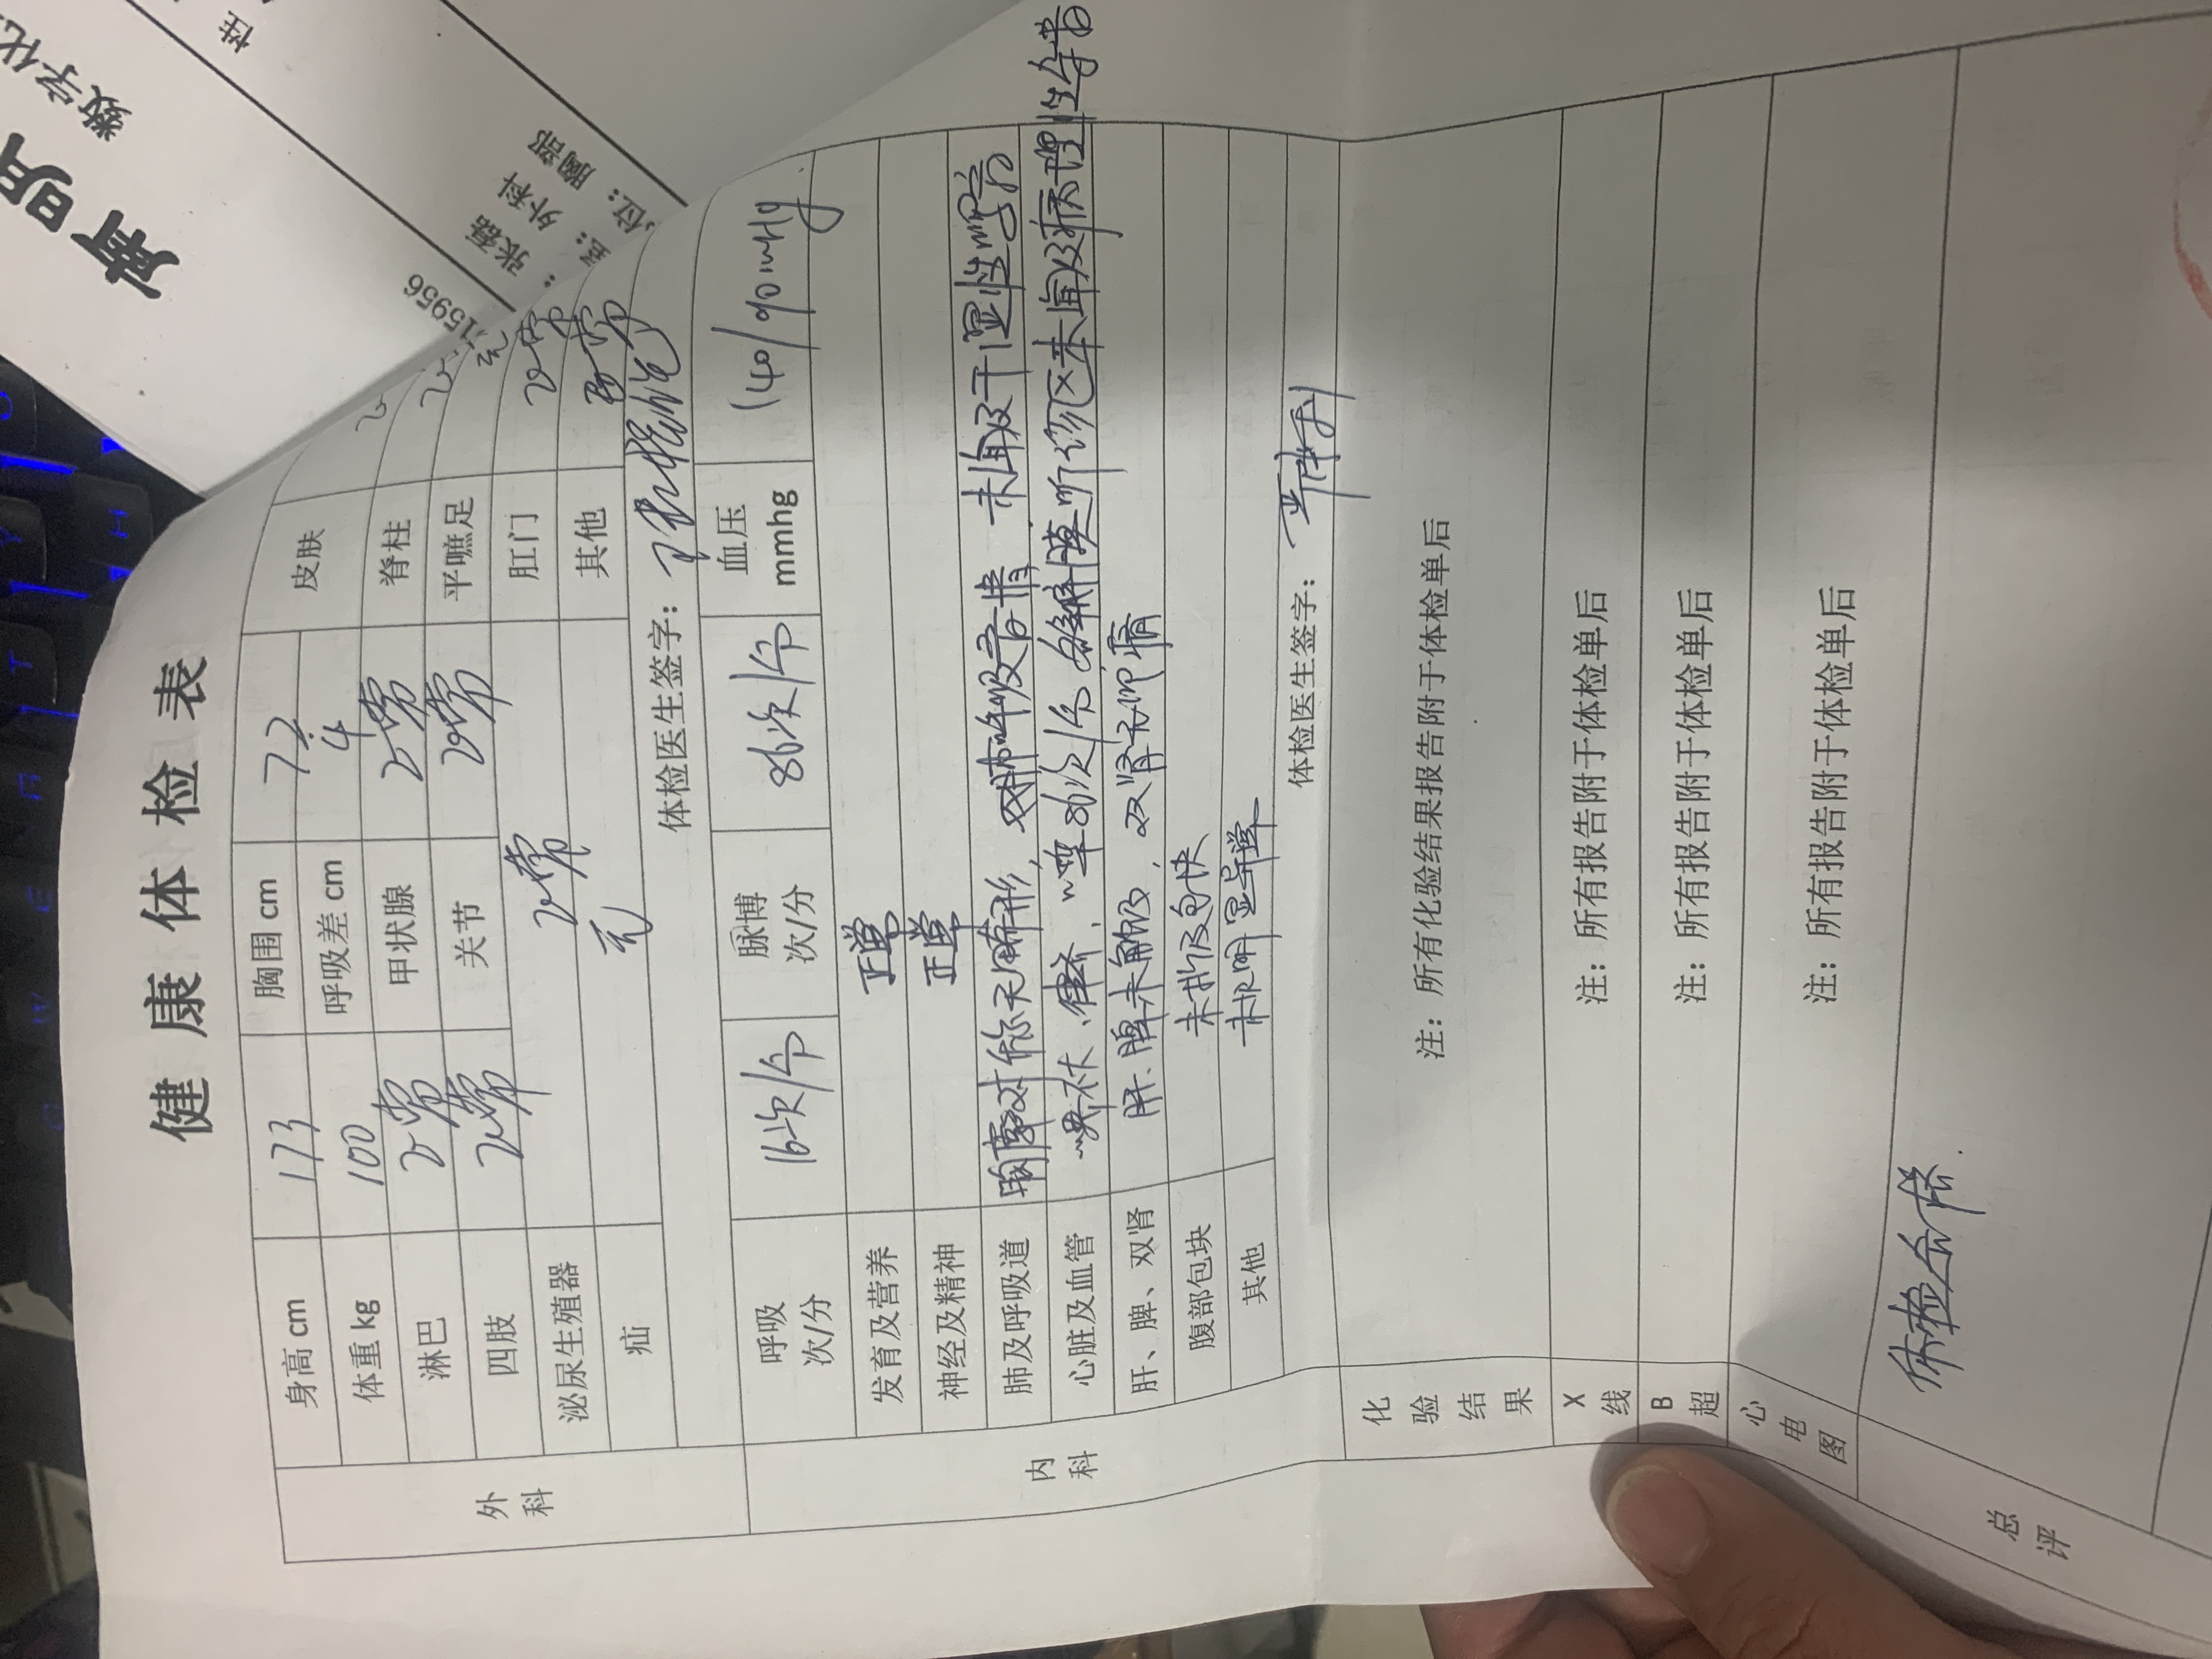 健康体检表
外科
身高 cm 173 胸围 cm 72 皮肤
体重 kg 100 呼吸差 cm 4 脊柱
淋巴 正常 甲状腺 正常 平嗻足
四肢 正常 关节 正常 肛门 正常
泌尿生殖器 正常 其他
疝 无
体检医生签字：
内科
呼吸 次/分 16次/分 脉博 次/分 86次/分 血压 mmhg 140/90mmHg
发育及营养 正常
神经及精神 正常
肺及呼吸道 胸廓对称无畸形，双肺呼吸音清，未闻及干湿性啰音
心脏及血管 心界不大、律齐，心率86次/分 各瓣膜听诊区未闻及病理性杂音
肝、脾、双肾 肝、脾未触及，双肾无叩痛
腹部包块 未扪及包块
其他 未见明显异常
体检医生签字：
化验结果 注：所有化验结果报告附于体检单后
X线 注：所有报告附于体检单后
B超 注：所有报告附于体检单后
心电图 注：所有报告附于体检单后
总评 体检合格.
数字化
性
159956
：张磊
外科
位：胸部